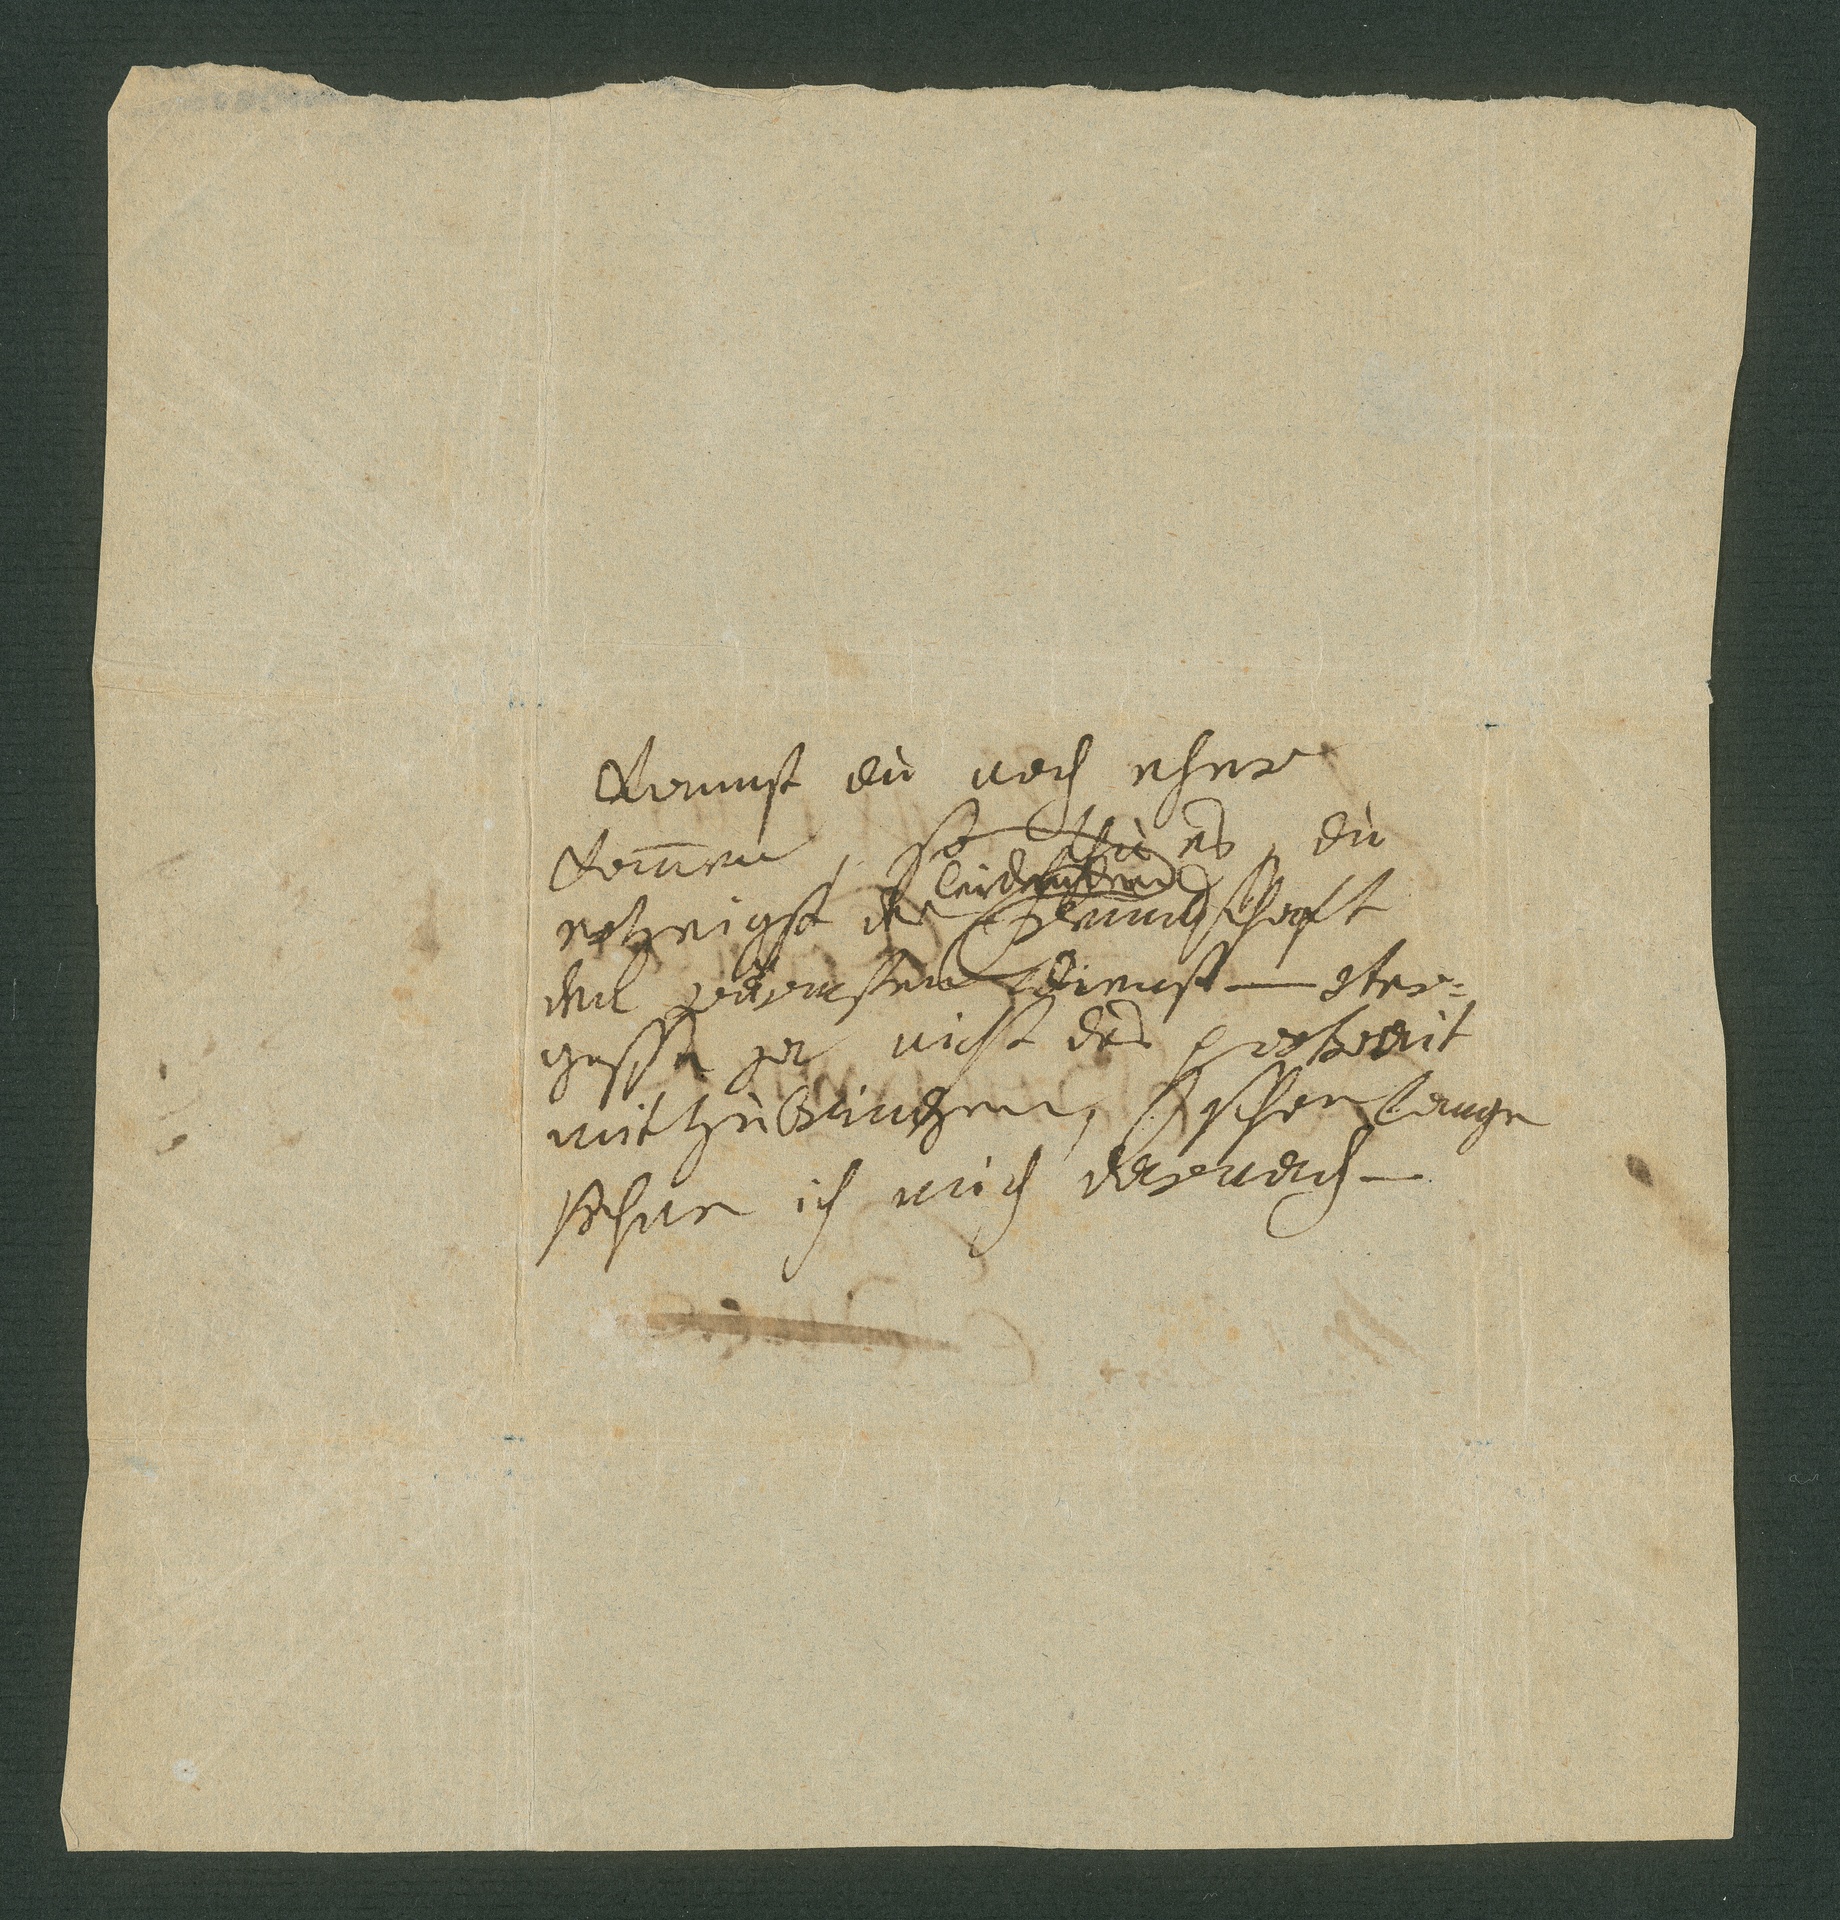 kannst du noch eher
kom̅en, so thu es, du
erzeigst der leidenden
Freundschaft
den grösten Dienst — Ver=
gesse ja nicht das portrait
mitzubringen, schon lange
sehne ich mich darnach —